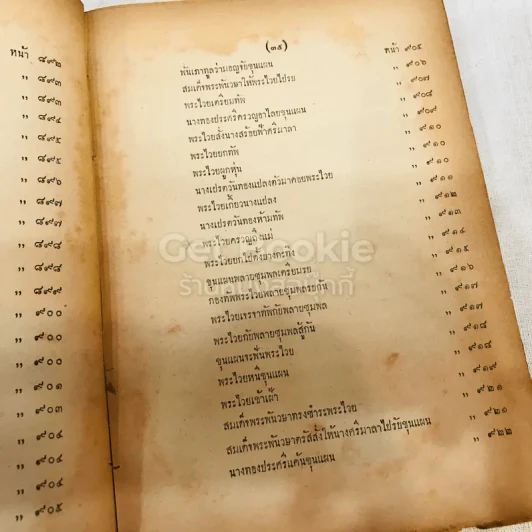 หน้า ๘๙๒
” ๘๙๓
” ๘๙๓
” ๘๙๔
” ๘๙๕
” ๘๙๕
” ๘๙๖
” ๘๙๗
” ๘๙๗
” ๘๙๘
” ๘๙๘
” ๘๙๙
” ๙๐๐
” ๙๐๐
” ๙๐๐
” ๙๐๑
” ๙๐๓
” ๙๐๔
” ๙๐๔
” ๙๐๔
” ๙๐๕
(๓๕)
พันเภาทูลว่ามอญจับขุนแผน หน้า ๙๐๕
สมเด็จพระพันวษาให้พระไวยไปรบ ” ๙๐๖
พระไวยเตรียมทัพ ” ๙๐๗
นางทองประศรีครวญอาไลยขุนแผน ” ๙๐๘
พระไวยสั่งนางสร้อยฟ้าศรีมาลา ” ๙๐๙
พระไวยยกทัพ ” ๙๑๐
พระไวยผูกหุ่น ” ๙๑๐
นางเปรตวันทองแปลงตัวมาคอยพระไวย ” ๙๑๐
พระไวยเกี้ยวนางแปลง ” ๙๑๑
นางเปรตวันทองห้ามทัพ ” ๙๑๒
พระไวยครวญถึงแม่ ” ๙๑๓
พระไวยยกไปตั้งบางกะทิง ” ๙๑๔
ขุนแผนพลายชุมพลเตรียมรบ ” ๙๑๕
กองทัพพระไวยพลายชุมพลรบกัน ” ๙๑๖
พระไวยเจรจาทัพกับพลายชุมพล ” ๙๑๗
พระไวยกับพลายชุมพลสู้กัน ” ๙๑๗
ขุนแผนจะฟันพระไวย ” ๙๑๘
พระไวยหนีขุนแผน ” ๙๑๙
พระไวยเข้าเฝ้า
สมเด็จพระพันวษาทรงชำระพระไวย ” ๙๒๑
สมเด็จพระพันวษาตรัสสั่งให้นางศรีมาลาไปรับขุนแผน ” ๙๒๑
นางทองประศรีแค้นขุนแผน ” ๙๒๒
Get Bookie
ร้านหนังสือเก็ตบุ๊กกี้